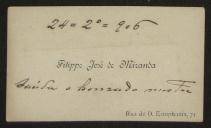 24 = 2º = 906
Filippe José de Miranda
Saúda o honrado
Rua de O. Estephania, 71